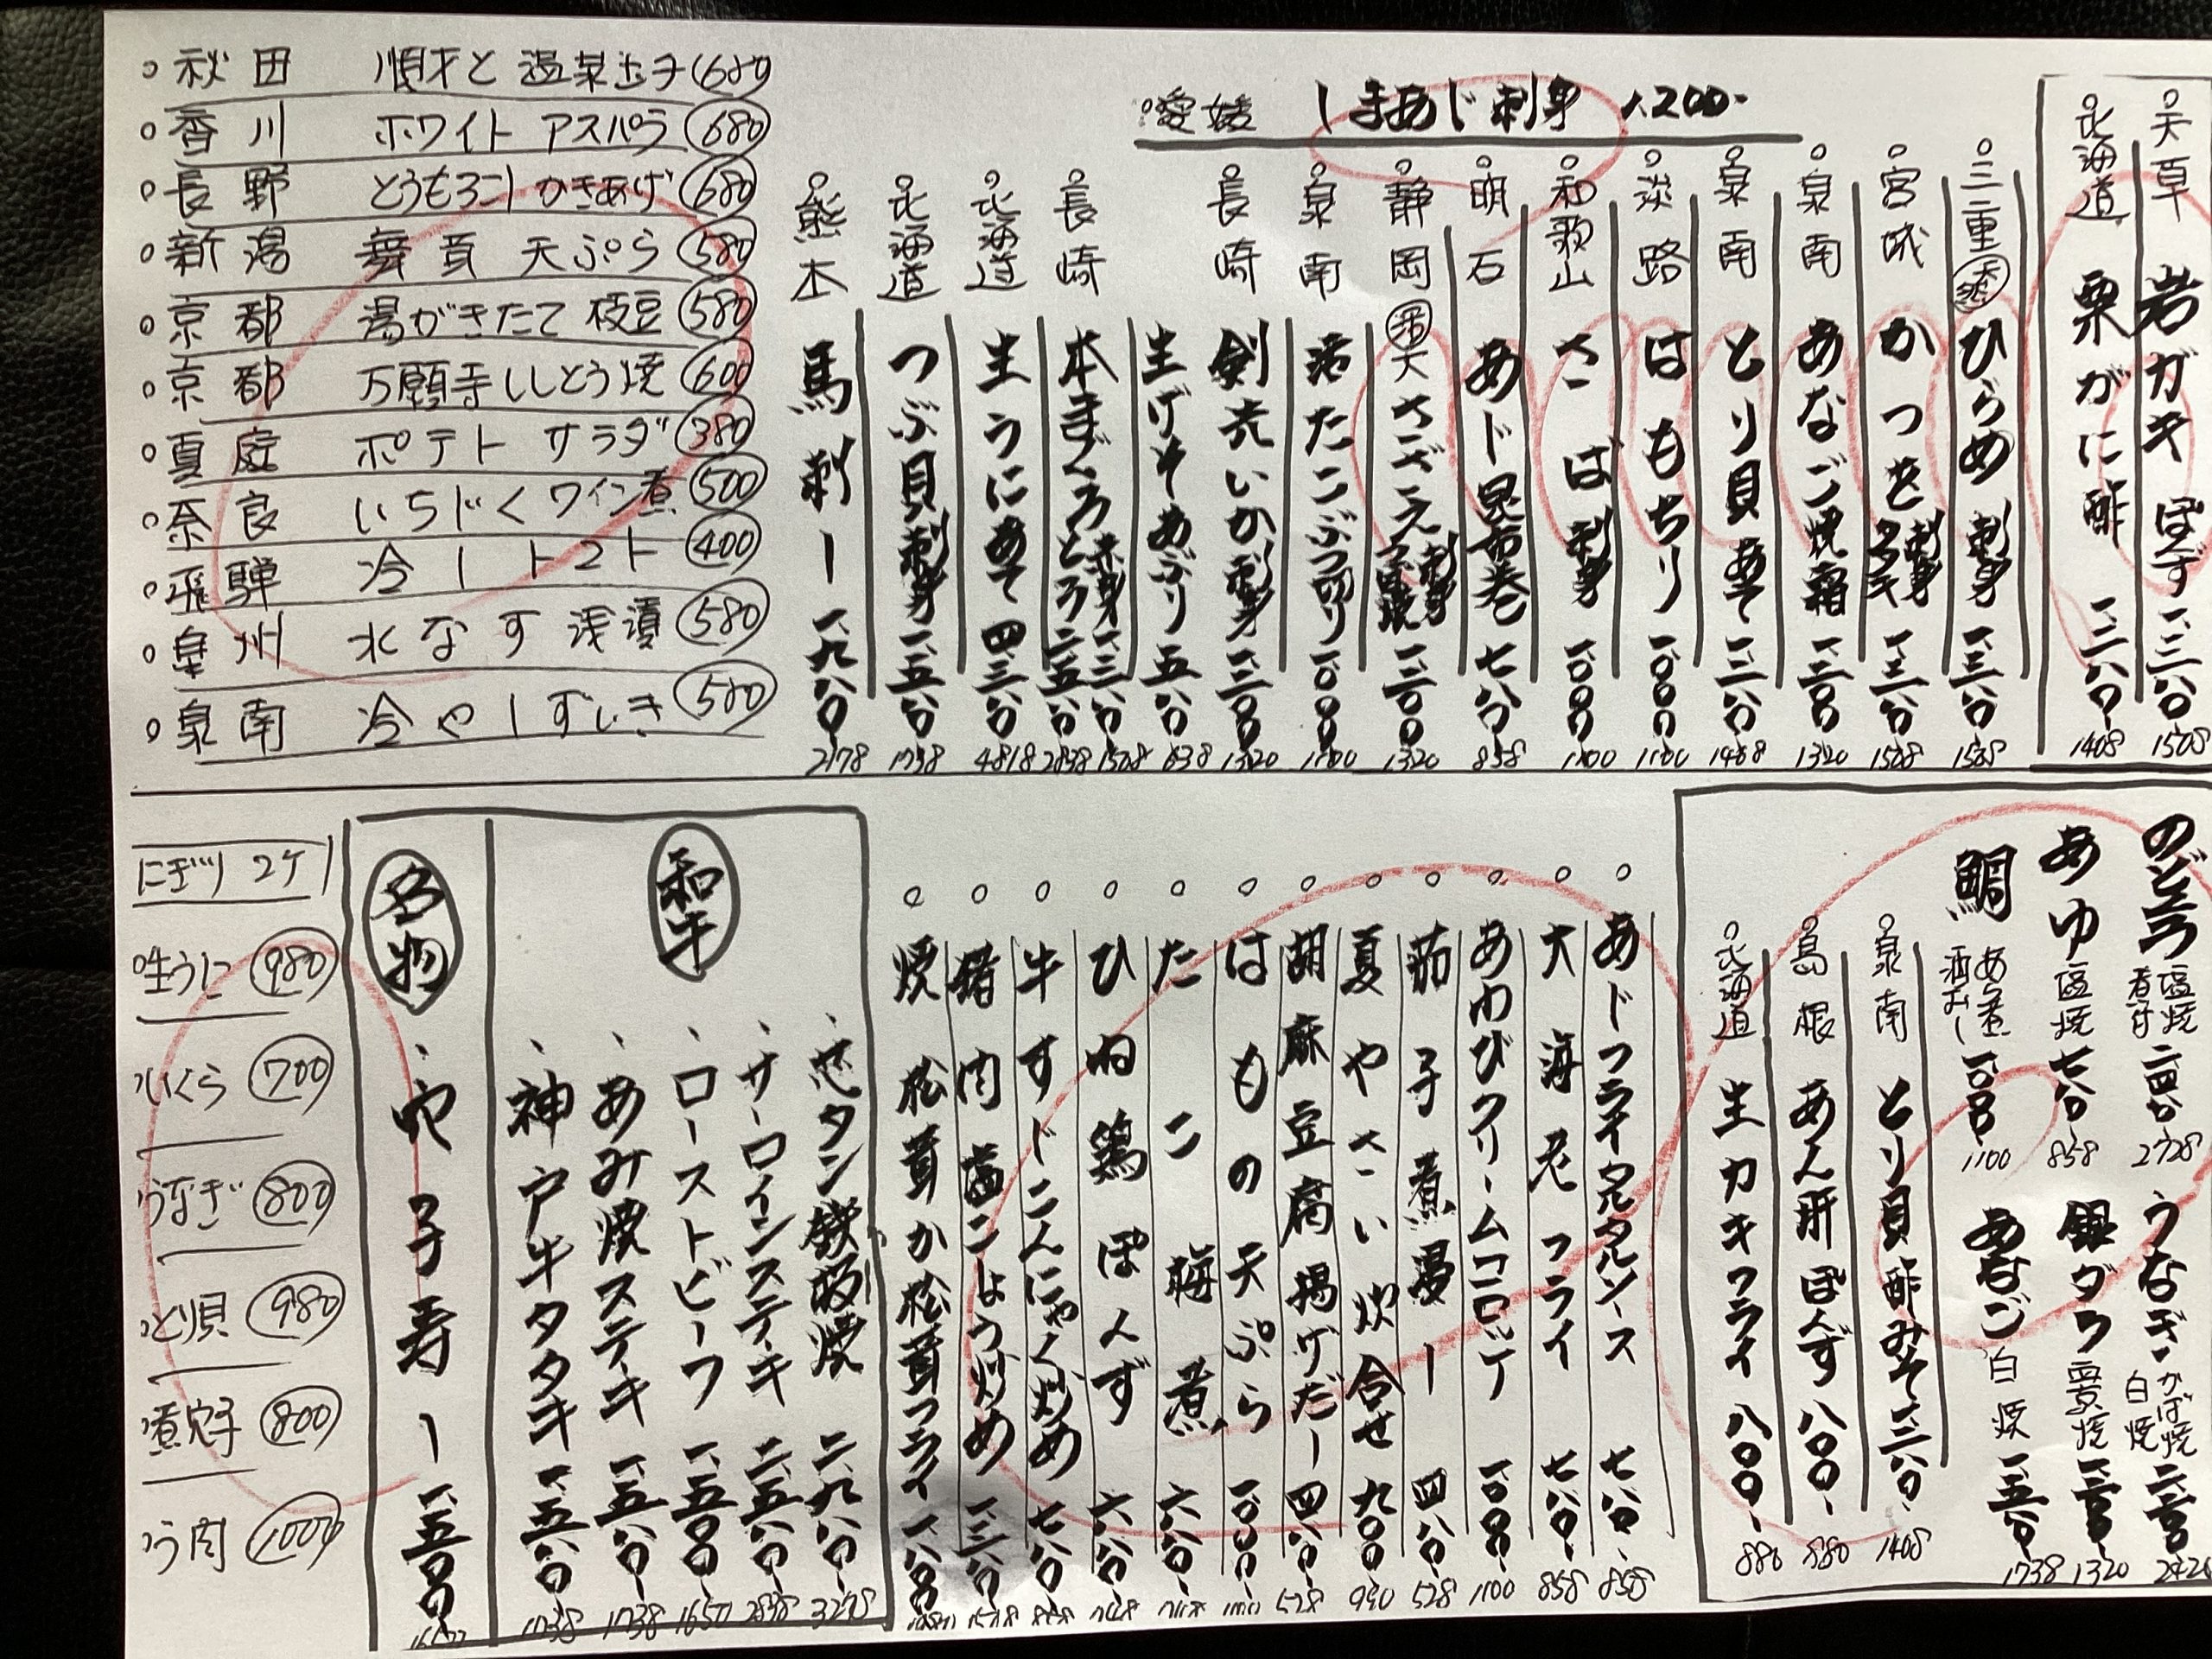 秋田 順才と温菜玉子 680
香川 ホワイトアスパラ 680
長野 とうもろこしかきあげ 680
新潟 舞茸天ぷら 580
京都 湯がきたて枝豆 580
京都 万願寺ししとう焼 600
真庭 ポテトサラダ 380
奈良 いちじくワイン煮 500
飛騨 冷しトマト 400
泉州 水なす浅漬 580
泉南 冷やしずいき 500
愛媛 しまあじ刺身 1.200-
天草 岩ガキ ぽんず 一、三八〇 1508
北海道 栗がに酢 1408
三重 天然 ひらめ刺身 一、三八〇 1508
宮城 かつを 刺身 タタキ 一、三八〇 1508
泉南 あなご焼霜 一、二〇〇 1320
泉南 とり貝あて 一、二八〇 1408
淡路 はもちり 一、〇〇〇 1100
和歌山 さば刺身 一、〇〇〇 1100
明石 あじ昆布巻 七八〇 858
静岡 活 大さざえ 刺身 つぼ焼 一、二〇〇 1320
泉南 活たこぶつ切り 一、〇〇〇 1100
長崎 剣先いか刺身 一、二〇〇 1320
生げそあぶり 五八〇 638
長崎 本まぐろ 赤身 一、三八〇 とろ 二、五八〇 1508 2838
北海道 生うにあて 四、三八〇 4818
北海道 つぶ貝刺身 一、五八〇 1738
熊本 馬刺し 一、九八〇 2178
のどぐろ 塩焼 煮付 二、四八〇 2728
あゆ 塩焼 七八〇 858
鯛 あら煮 酒むし 一、〇〇〇 1100
うなぎ かば焼 白焼 二、二〇〇 2420
銀ダラ 西京焼 一、二〇〇 1320
あなご 白焼 一、五八〇 1738
泉南 とり貝酢みそ 一、二八〇- 1408
島根 あん肝ぽんず 八〇〇- 880
北海道 生カキフライ 八〇〇- 880
あじフライタルタルソース 七八〇- 858
大海老フライ 七八〇- 858
あわびクリームコロッケ 一、〇〇〇- 1100
茄子煮浸し 四八〇- 528
夏やさい炊合せ 九〇〇- 990
胡麻豆腐揚げだし 四八〇- 528
はもの天ぷら 一、〇〇〇- 1100
たこ梅煮 六八〇- 748
ひね鶏ぽんず 六八〇- 748
牛すじこんにゃく炒め 七八〇- 858
猪肉塩こしょう炒め 一、三八〇- 1518
焼松茸か松茸フライ
和牛
芯タン鉄板焼 二、九八〇- 3278
サーロインステーキ 二、五八〇- 2838
ローストビーフ 一、五〇〇- 1650
あみ焼ステーキ 一、五八〇- 1738
神戸牛タタキ 一、五八〇- 1738
名物
穴子寿し 一、五〇〇-
にぎり 2ケ
生うに 980
いくら 700
うなぎ 800
とり貝 980
煮穴子 800
うに肉 1000